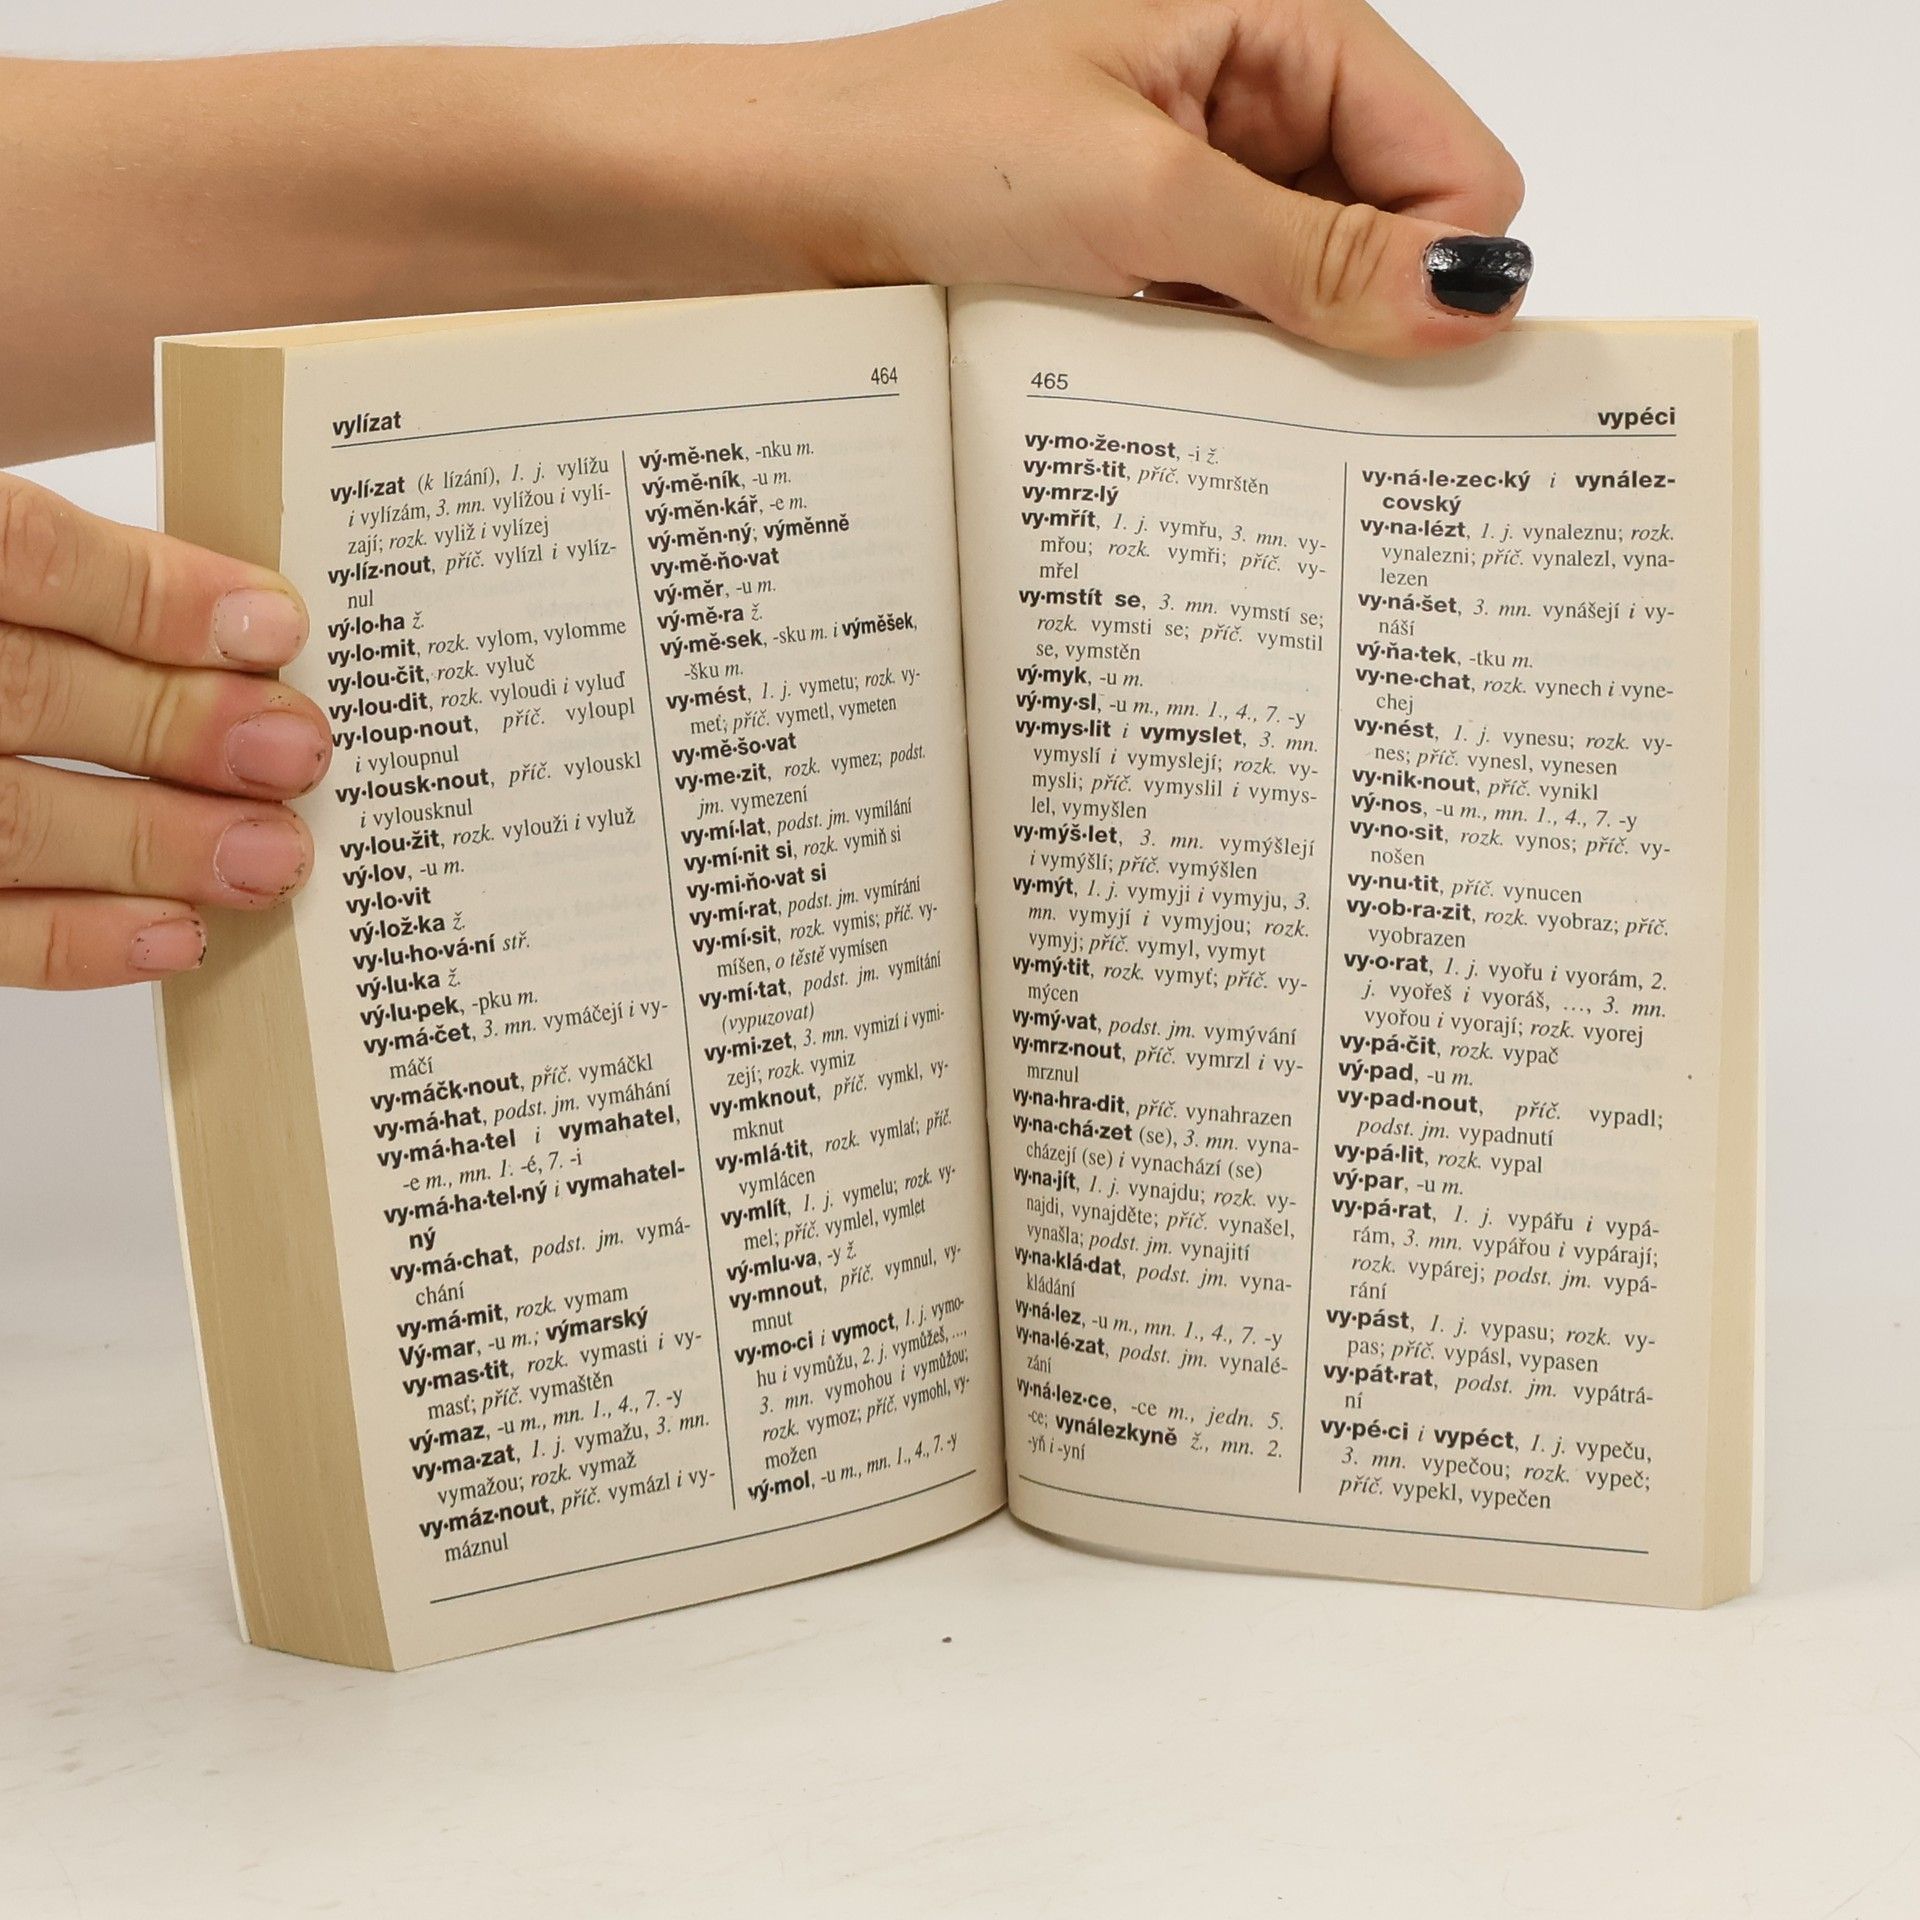 464
vylízat
vy·lí·zat (k lízání), 1. j. vylížu
i vylízám, 3. mn. vylížou i vylí-
zají; rozk. vyliž i vylízej
vy·líz·nout, příč. vylízl i vylíz-
nul
vý·lo·ha ž.
vy·lo·mit, rozk. vylom, vylomme
vy·lou·čit, rozk. vyluč
vy·lou·dit, rozk. vyloudi i vyluď
vy·loup·nout, příč. vyloupl
i vyloupnul
vy·lousk·nout, příč. vylouskl
i vylousknul
vy·lou·žit, rozk. vylouži i vyluž
vý·lov, -u m.
vy·lo·vit
vý·lož·ka ž.
vy·lu·ho·vá·ní stř.
vý·lu·ka ž.
vý·lu·pek, -pku m.
vy·má·čet, 3. mn. vymáčejí i vy-
máčí
vy·máčk·nout, příč. vymáčkl
vy·má·hat, podst. jm. vymáhání
vy·má·ha·tel i vymahatel,
-e m., mn. 1. -é, 7. -i
vy·má·ha·tel·ný i vymahatel-
ný
vy·má·chat, podst. jm. vymá-
chání
vy·má·mit, rozk. vymam
Vý·mar, -u m.; výmarský
vy·mas·tit, rozk. vymasti i vy-
masť; příč. vymaštěn
vý·maz, -u m., mn. 1., 4., 7. -y
vy·ma·zat, 1. j. vymažu, 3. mn.
vymažou; rozk. vymaž
vy·máz·nout, příč. vymázl i vy-
máznul
vý·mě·nek, -nku m.
vý·mě·ník, -u m.
vý·měn·kář, -e m.
vý·měn·ný; výměnně
vy·mě·ňo·vat
vý·měr, -u m.
vý·mě·ra ž.
vý·mě·sek, -sku m. i výměšek,
-šku m.
vy·mést, 1. j. vymetu; rozk. vy-
meť; příč. vymetl, vymeten
vy·mě·šo·vat
vy·me·zit, rozk. vymez; podst.
jm. vymezení
vy·mí·lat, podst. jm. vymílání
vy·mí·nit si, rozk. vymiň si
vy·mi·ňo·vat si
vy·mí·rat, podst. jm. vymírání
vy·mí·sit, rozk. vymis; příč. vy-
míšen, o těstě vymísen
vy·mí·tat, podst. jm. vymítání
(vypuzovat)
vy·mi·zet, 3. mn. vymizí i vymi-
zejí; rozk. vymiz
vy·mknout, příč. vymkl, vy-
mknut
vy·mlá·tit, rozk. vymlať; příč.
vymlácen
vy·mlít, 1. j. vymelu; rozk. vy-
mel; příč. vymlel, vymlet
vý·mlu·va, -y ž.
vy·mnout, příč. vymnul, vy-
mnut
vy·mo·ci i vymoct, 1. j. vymo-
hu i vymůžu, 2. j. vymůžeš, ...,
3. mn. vymohou i vymůžou;
rozk. vymoz; příč. vymohl, vy-
možen
vý·mol, -u m., mn. 1., 4., 7. -y
465
vypéci
vy·mo·že·nost, -i ž.
vy·mrš·tit, příč. vymrštěn
vy·mrz·lý
vy·mřít, 1. j. vymřu, 3. mn. vy-
mřou; rozk. vymři; příč. vy-
mřel
vy·mstít se, 3. mn. vymstí se;
rozk. vymsti se; příč. vymstil
se, vymstěn
vý·myk, -u m.
vý·my·sl, -u m., mn. 1., 4., 7. -y
vy·mys·lit i vymyslet, 3. mn.
vymyslí i vymyslejí; rozk. vy-
mysli; příč. vymyslil i vymys-
lel, vymyšlen
vy·mýš·let, 3. mn. vymýšlejí
i vymýšlí; příč. vymýšlen
vy·mýt, 1. j. vymyji i vymyju, 3.
mn. vymyjí i vymyjou; rozk.
vymyj; příč. vymyl, vymyt
vy·mý·tit, rozk. vymyť; příč. vy-
mýcen
vy·mý·vat, podst. jm. vymývání
vy·mrz·nout, příč. vymrzl i vy-
mrznul
vy·na·hra·dit, příč. vynahrazen
vy·na·chá·zet (se), 3. mn. vyna-
cházejí (se) i vynachází (se)
vy·na·jít, 1. j. vynajdu; rozk. vy-
najdi, vynajděte; příč. vynašel,
vynašla; podst. jm. vynajití
vy·na·klá·dat, podst. jm. vyna-
kládání
vy·ná·lez, -u m., mn. 1., 4., 7. -y
vy·na·lé·zat, podst. jm. vynalé-
zání
vy·ná·lez·ce, -ce m., jedn. 5.
-ce; vynálezkyně ž., mn. 2.
-yň i -yní
vy·ná·le·zec·ký i vynález-
covský
vy·na·lézt, 1. j. vynaleznu; rozk.
vynalezni; příč. vynalezl, vyna-
lezen
vy·ná·šet, 3. mn. vynášejí i vy-
náší
vý·ňa·tek, -tku m.
vy·ne·chat, rozk. vynech i vyne-
chej
vy·nést, 1. j. vynesu; rozk. vy-
nes; příč. vynesl, vynesen
vy·nik·nout, příč. vynikl
vý·nos, -u m., mn. 1., 4., 7. -y
vy·no·sit, rozk. vynos; příč. vy-
nošen
vy·nu·tit, příč. vynucen
vy·ob·ra·zit, rozk. vyobraz; příč.
vyobrazen
vy·o·rat, 1. j. vyořu i vyorám, 2.
j. vyořeš i vyoráš, ..., 3. mn.
vyořou i vyorají; rozk. vyorej
vy·pá·čit, rozk. vypač
vý·pad, -u m.
vy·pad·nout, příč. vypadl;
podst. jm. vypadnutí
vy·pá·lit, rozk. vypal
vý·par, -u m.
vy·pá·rat, 1. j. vypářu i vypá-
rám, 3. mn. vypářou i vypárají;
rozk. vypárej; podst. jm. vypá-
rání
vy·pást, 1. j. vypasu; rozk. vy-
pas; příč. vypásl, vypasen
vy·pát·rat, podst. jm. vypátrá-
ní
vy·pé·ci i vypéct, 1. j. vypeču,
3. mn. vypečou; rozk. vypeč;
příč. vypekl, vypečen